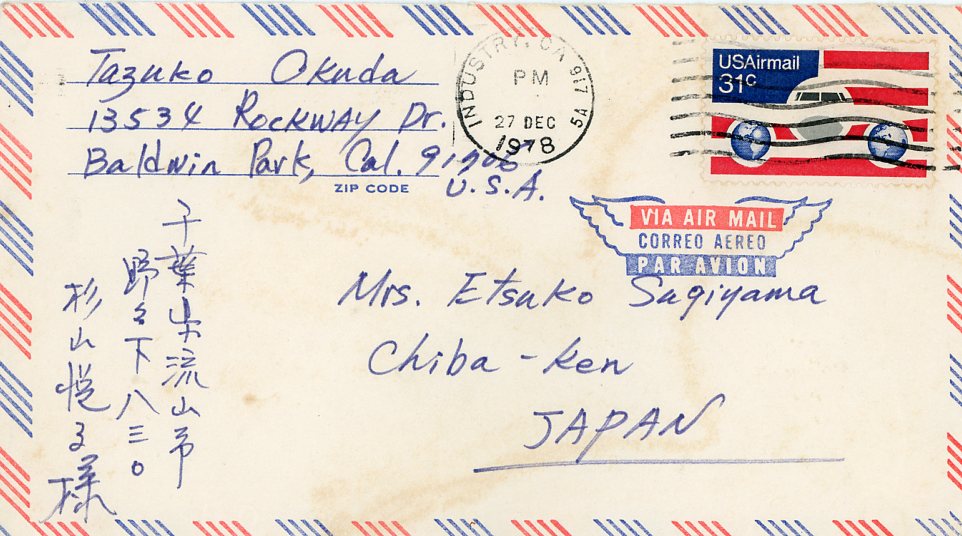 Tazuko Okuda
13534 Rockway Dr.
Baldwin Park, Cal. 91706
ZIP CODE
U.S.A.
INDUSTRY, CA 917
PM
27 DEC
1978
5A
USAirmail
31c
VIA AIR MAIL
CORREO AEREO
PAR AVION
Mrs. Etsuko Sugiyama
Chiba-Ken
JAPAN
千葉県流山市
野々下八三〇
杉山悦子様